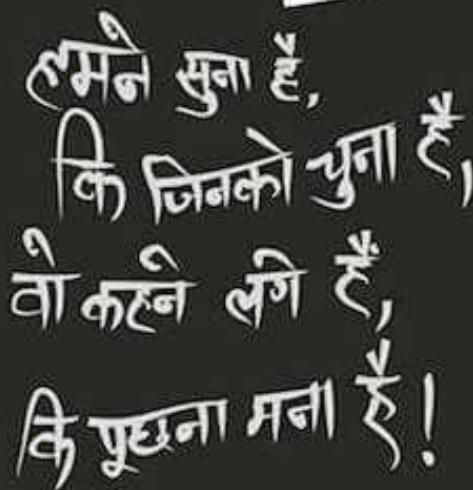 हमने सुना है,
कि जिनको चुना है,
वो कहने लगे हैं,
कि पूछना मना है!